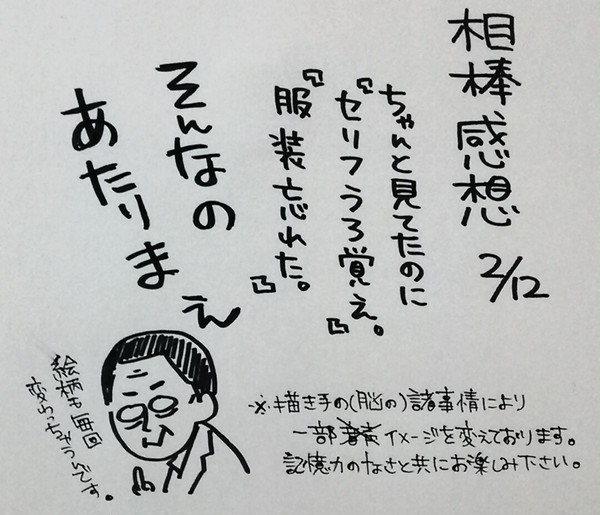 相棒感想 2/12
ちゃんと見てたのに
『セリフうろ覚え。』
『服装忘れた。』
そんなの
あたりまえ
絵柄も毎回
変わっちゃうんです。
※描き手の(脳の)諸事情により
一部イメージを変えております。
記憶力のなさと共にお楽しみ下さい。